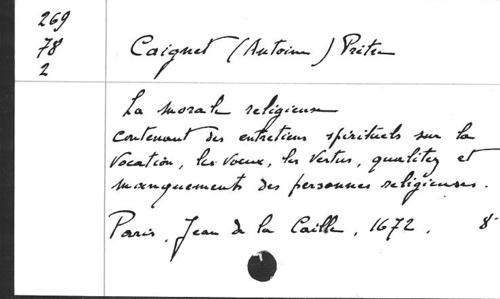 269
78
2
Caignet (Antoine) Prêtre
La morale religieuse
contenant des entretiens spirituels sur la
vocation, les voeux, les vertus, qualitez et
manquements des personnes religieuses.
Paris, Jean de la Caille, 1672. 8°